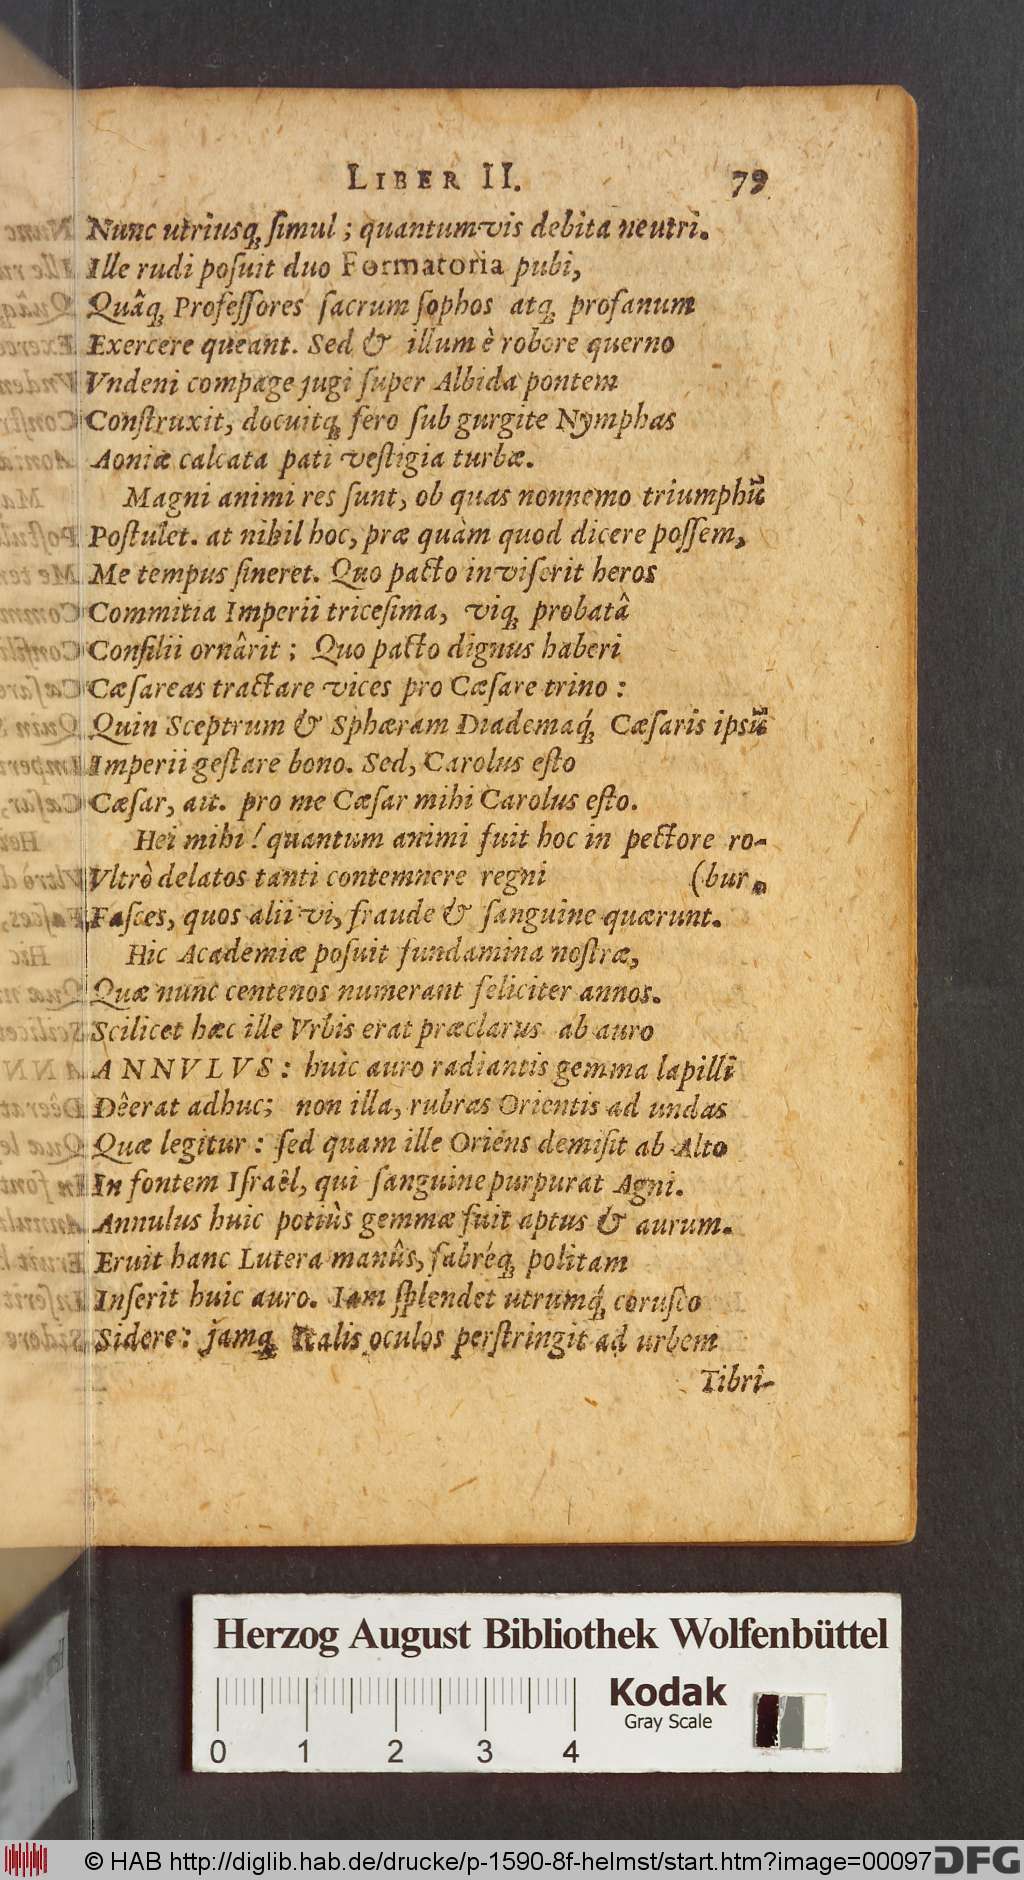 LIBER II. 79
Nunc utriusq; ſimul ; quantumvis debita neutri.
Ille rudi poſuit duo Formatoria pubi,
Quâq; Profeſſores ſacrum ſophos atq; profanum
Exercere queant. Sed & illum è robore querno
Vndeni compage jugi ſuper Albida pontem
Conſtruxit, docuitq; fero ſub gurgite Nymphas
Aoniæ calcata pati veſtigia turbæ.
Magni animi res ſunt, ob quas nonnemo triumphũ
Poſtulet. at nihil hoc, præ quàm quod dicere poſſem,
Me tempus ſineret. Quo pacto inviſerit heros
Commitia Imperii triceſima, viq; probatâ
Conſilii ornârit ; Quo pacto dignus haberi
Cæſareas tractare vices pro Cæſare trino :
Quin Sceptrum & Sphæram Diademaq́; Cæſaris ipsũ
Imperii geſtare bono. Sed, Carolus eſto
Cæſar, ait. pro me Cæſar mihi Carolus eſto.
Hei mihi ! quantum animi fuit hoc in pectore ro-
Vltrò delatos tanti contemnere regni (bur,
Faſces, quos alii vi, fraude & ſanguine quærunt.
Hic Academiæ poſuit fundamina noſtræ,
Quæ nunc centenos numerant feliciter annos.
Scilicet hæc ille Vrbis erat præclarus ab auro
ANNVLVS : huic auro radiantis gemma lapilli
Dêerat adhuc; non illa, rubras Orientis ad undas
Quæ legitur : ſed quam ille Oriens demiſit ab Alto
In fontem Iſraêl, qui ſanguine purpurat Agni.
Annulus huic potiùs gemmæ fuit aptus & aurum.
Eruit hanc Lutera manûs, fabréq; politam
Inſerit huic auro. Iam ſplendet utrumq́; coruſco
Sidere : jamq; Italis oculos perſtringit ad urbem
Tibri-
Herzog August Bibliothek Wolfenbüttel
Kodak
Gray Scale
0 1 2 3 4
© HAB http://diglib.hab.de/drucke/p-1590-8f-helmst/start.htm?image=00097 DFG